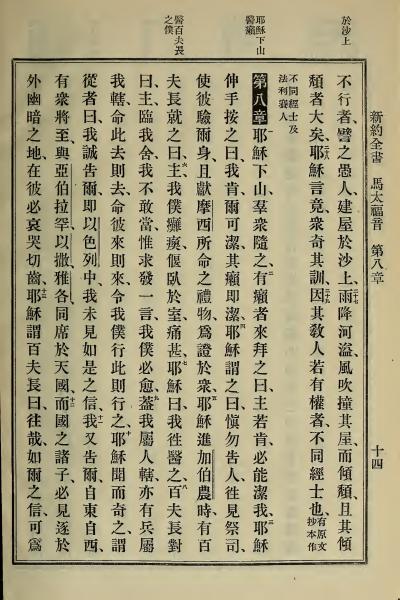 新約全書 馬太福音 第八章 十四
於沙上
耶穌下山
醫癩
醫百夫長
之僕
不行者、譬之愚人、建屋於沙上、二十七雨降河溢、風吹撞其屋而傾頹、且其傾
頹者大矣、二十八耶穌言竟、衆奇其訓、二十九因其敎人若有權者、不同經士也、有原文抄本作
不同經士及
法利賽人
第八章 一耶穌下山、羣衆隨之、二有癩者來拜之曰、主若肯、必能潔我、三耶穌
伸手按之曰、我肯、爾可潔、其癩卽潔、四耶穌謂之曰、愼勿告人、往見祭司、
使彼驗爾身、且獻摩西所命之禮物、爲證於衆、五耶穌進加伯農時、有百
夫長就之曰、六主、我僕癱瘓、偃臥於室、痛甚、七耶穌曰、我往醫之、八百夫長對
曰、主臨我舍、我不敢當、惟求發一言、我僕必愈、九蓋我屬人轄、亦有兵屬
我轄、命此去則去、命彼來則來、令我僕行此則行之、十耶穌聞而奇之、謂
從者曰、我誠告爾、卽以色列中、我未見如是之信、十一我又告爾、自東自西、
有衆將至、與亞伯拉罕以撒雅各同席於天國、十二而國之諸子、必見逐於
外幽暗之地、在彼必哀哭切齒、十三耶穌謂百夫長曰、往哉、如爾之信、可爲